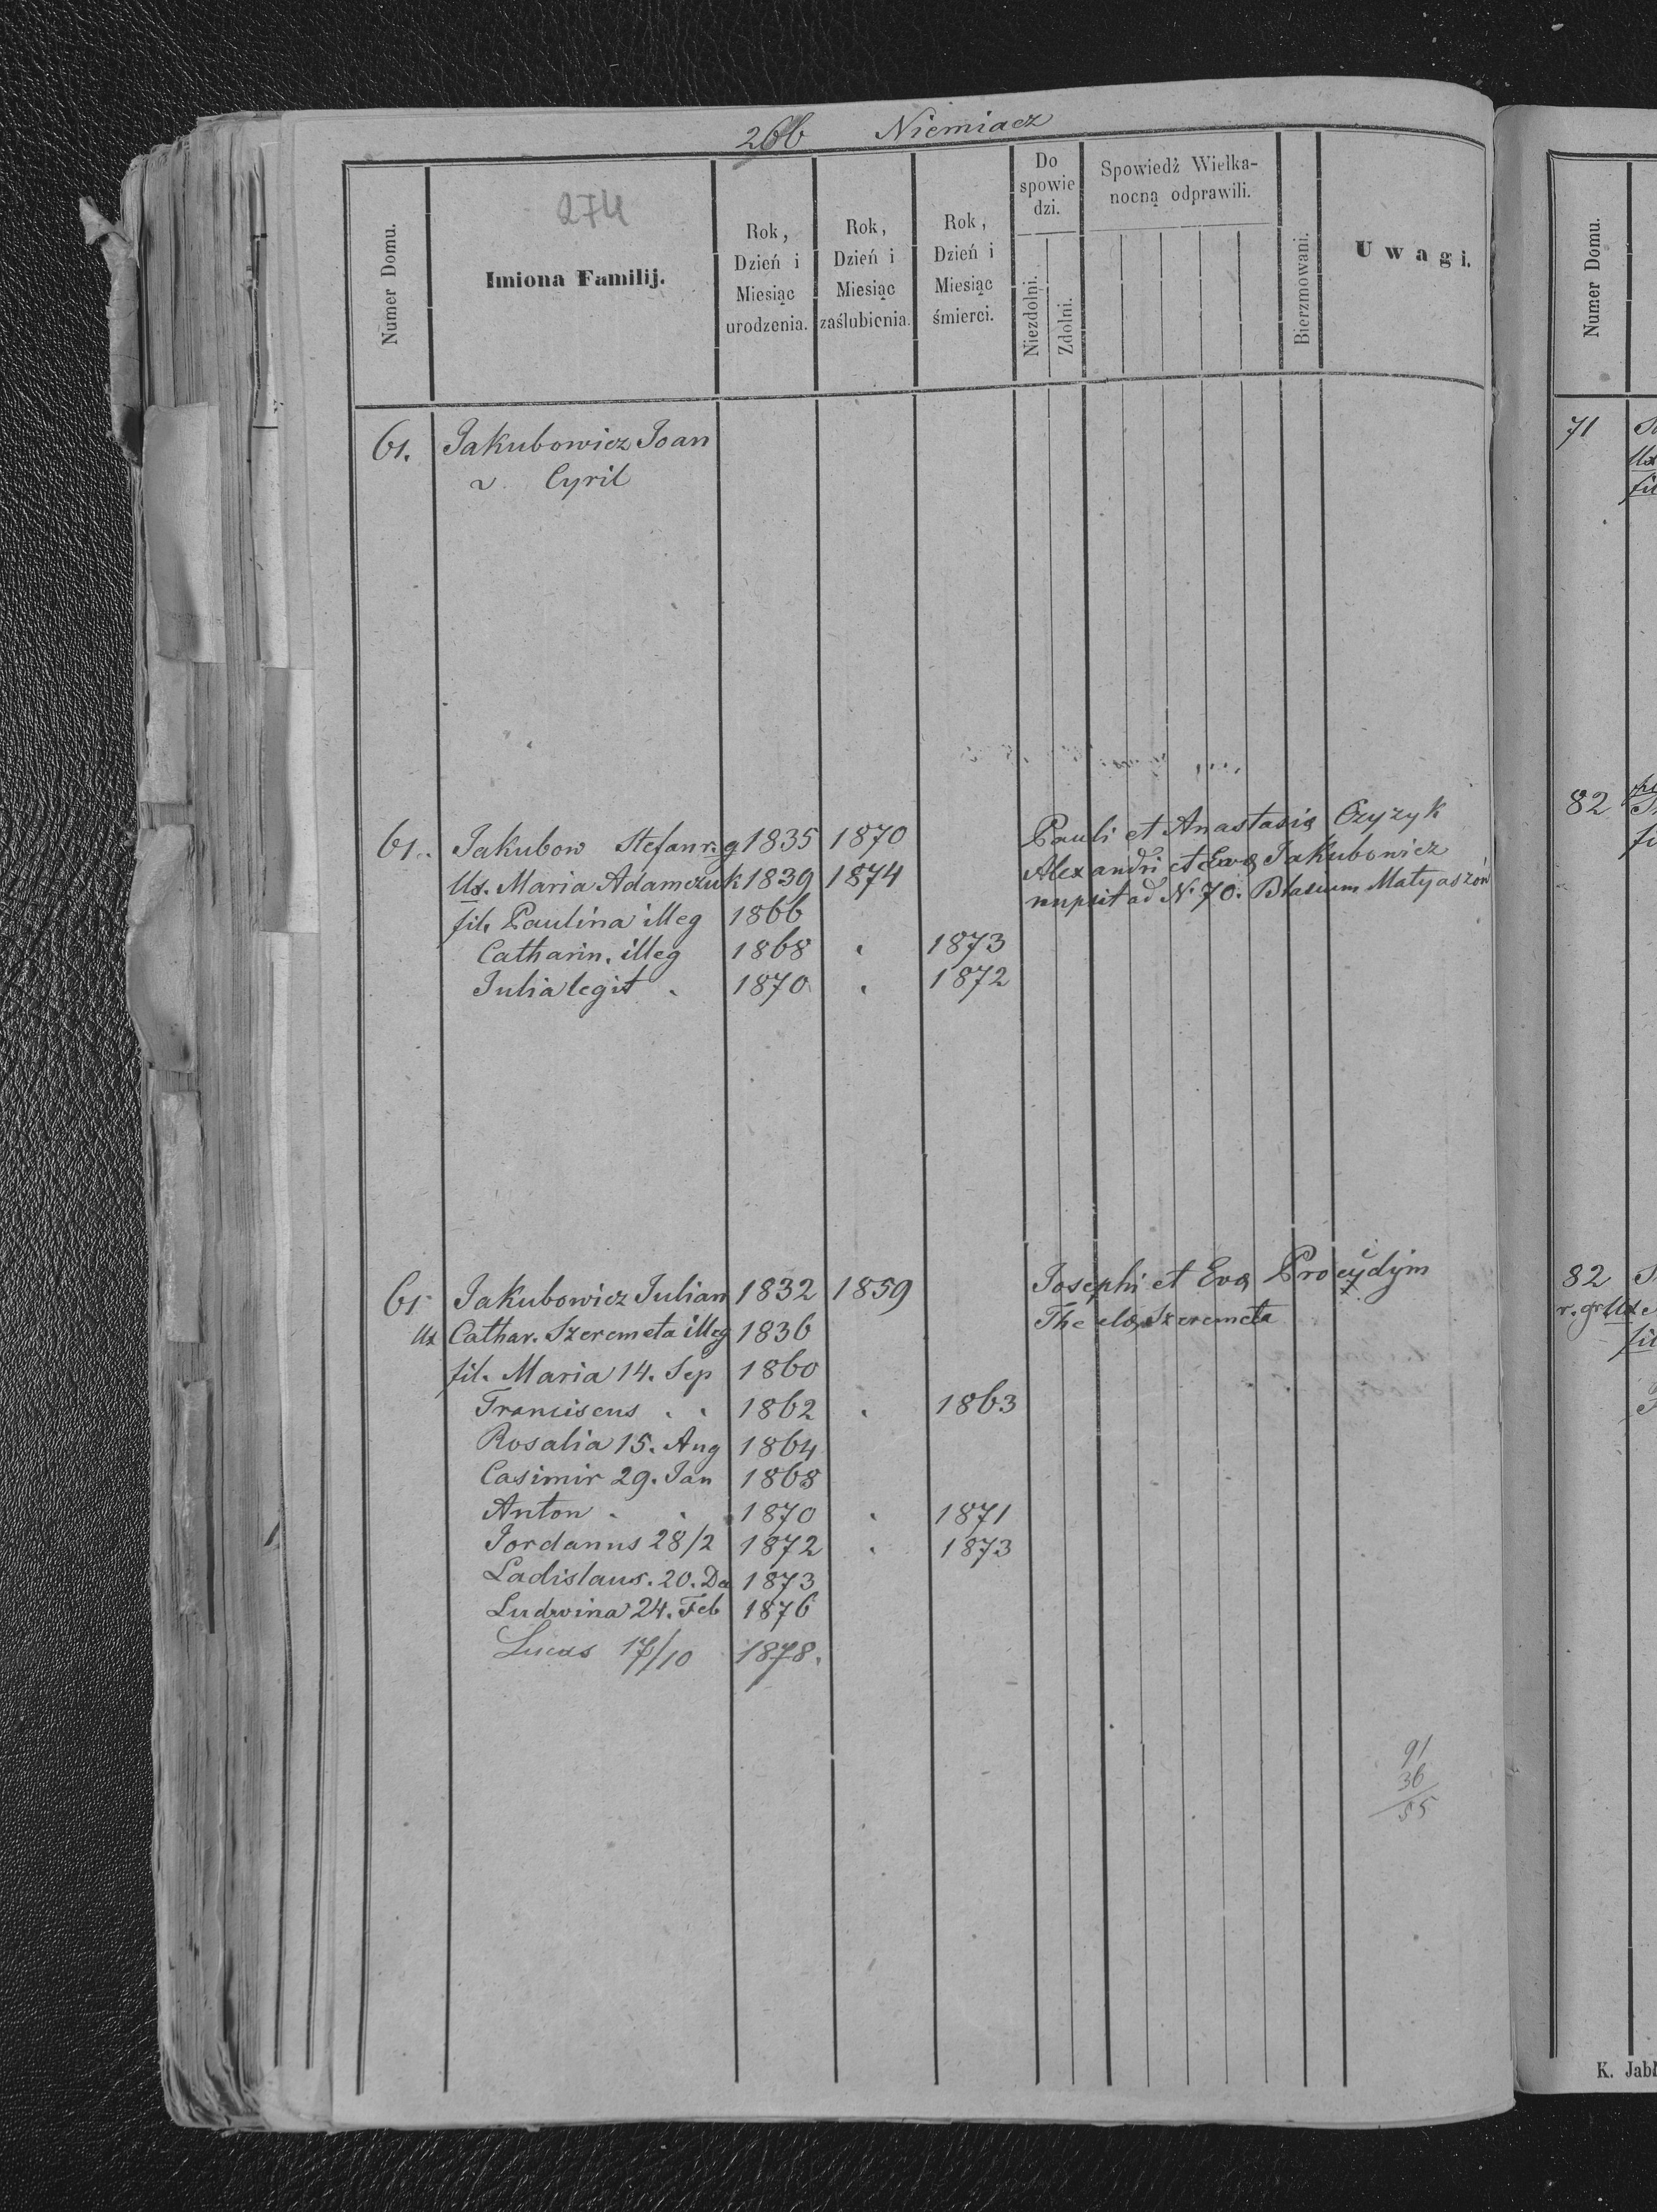 266 Niemiacz
274
Numer Domu.
Imiona Familij.
Rok, Dzień i Miesiąc urodzenia.
Rok, Dzień i Miesiąc zaślubienia.
Rok, Dzień i Miesiąc śmierci.
Do spowie dzi.
Niezdolni.
Zdolni.
Spowiedź Wielka-
nocną odprawili.
Bierzmowani.
Uwagi.
61. Jakubowicz Joan
v. Cyril
61. Jakubow Stefan r. g 1835 1870 Pauli et Anastasia Czyzyk
Ux. Maria Adamczuk 1839 1874 Alexandri et Eva Jakubowicz
nupsit ad N. 70. Blasium Matyaszów
fil. Paulina illeg 1866
Catharin. illeg 1868 1873
Julia legit. 1870 1872
61 Jakubowicz Julian 1832 1859 Josephi et Eva Procydym
Ux Cathar. Szeremeta illeg 1836 Thecla Szeremeta
fil. Maria 14. Sep 1860
Franciscus 1862 1863
Rosalia 15. Aug 1864
Casimir 29. Jan 1868
Anton 1870 1871
Jordanus 28/2 1872 1873
Ladislaus. 20. De 1873
Ludwina 24. Feb 1876
Lucas 17/10 1878.
91
36
55
Numer Domu.
71
Ux
fil
82
fi
82
r. gr Ux
fil
K. Jabł